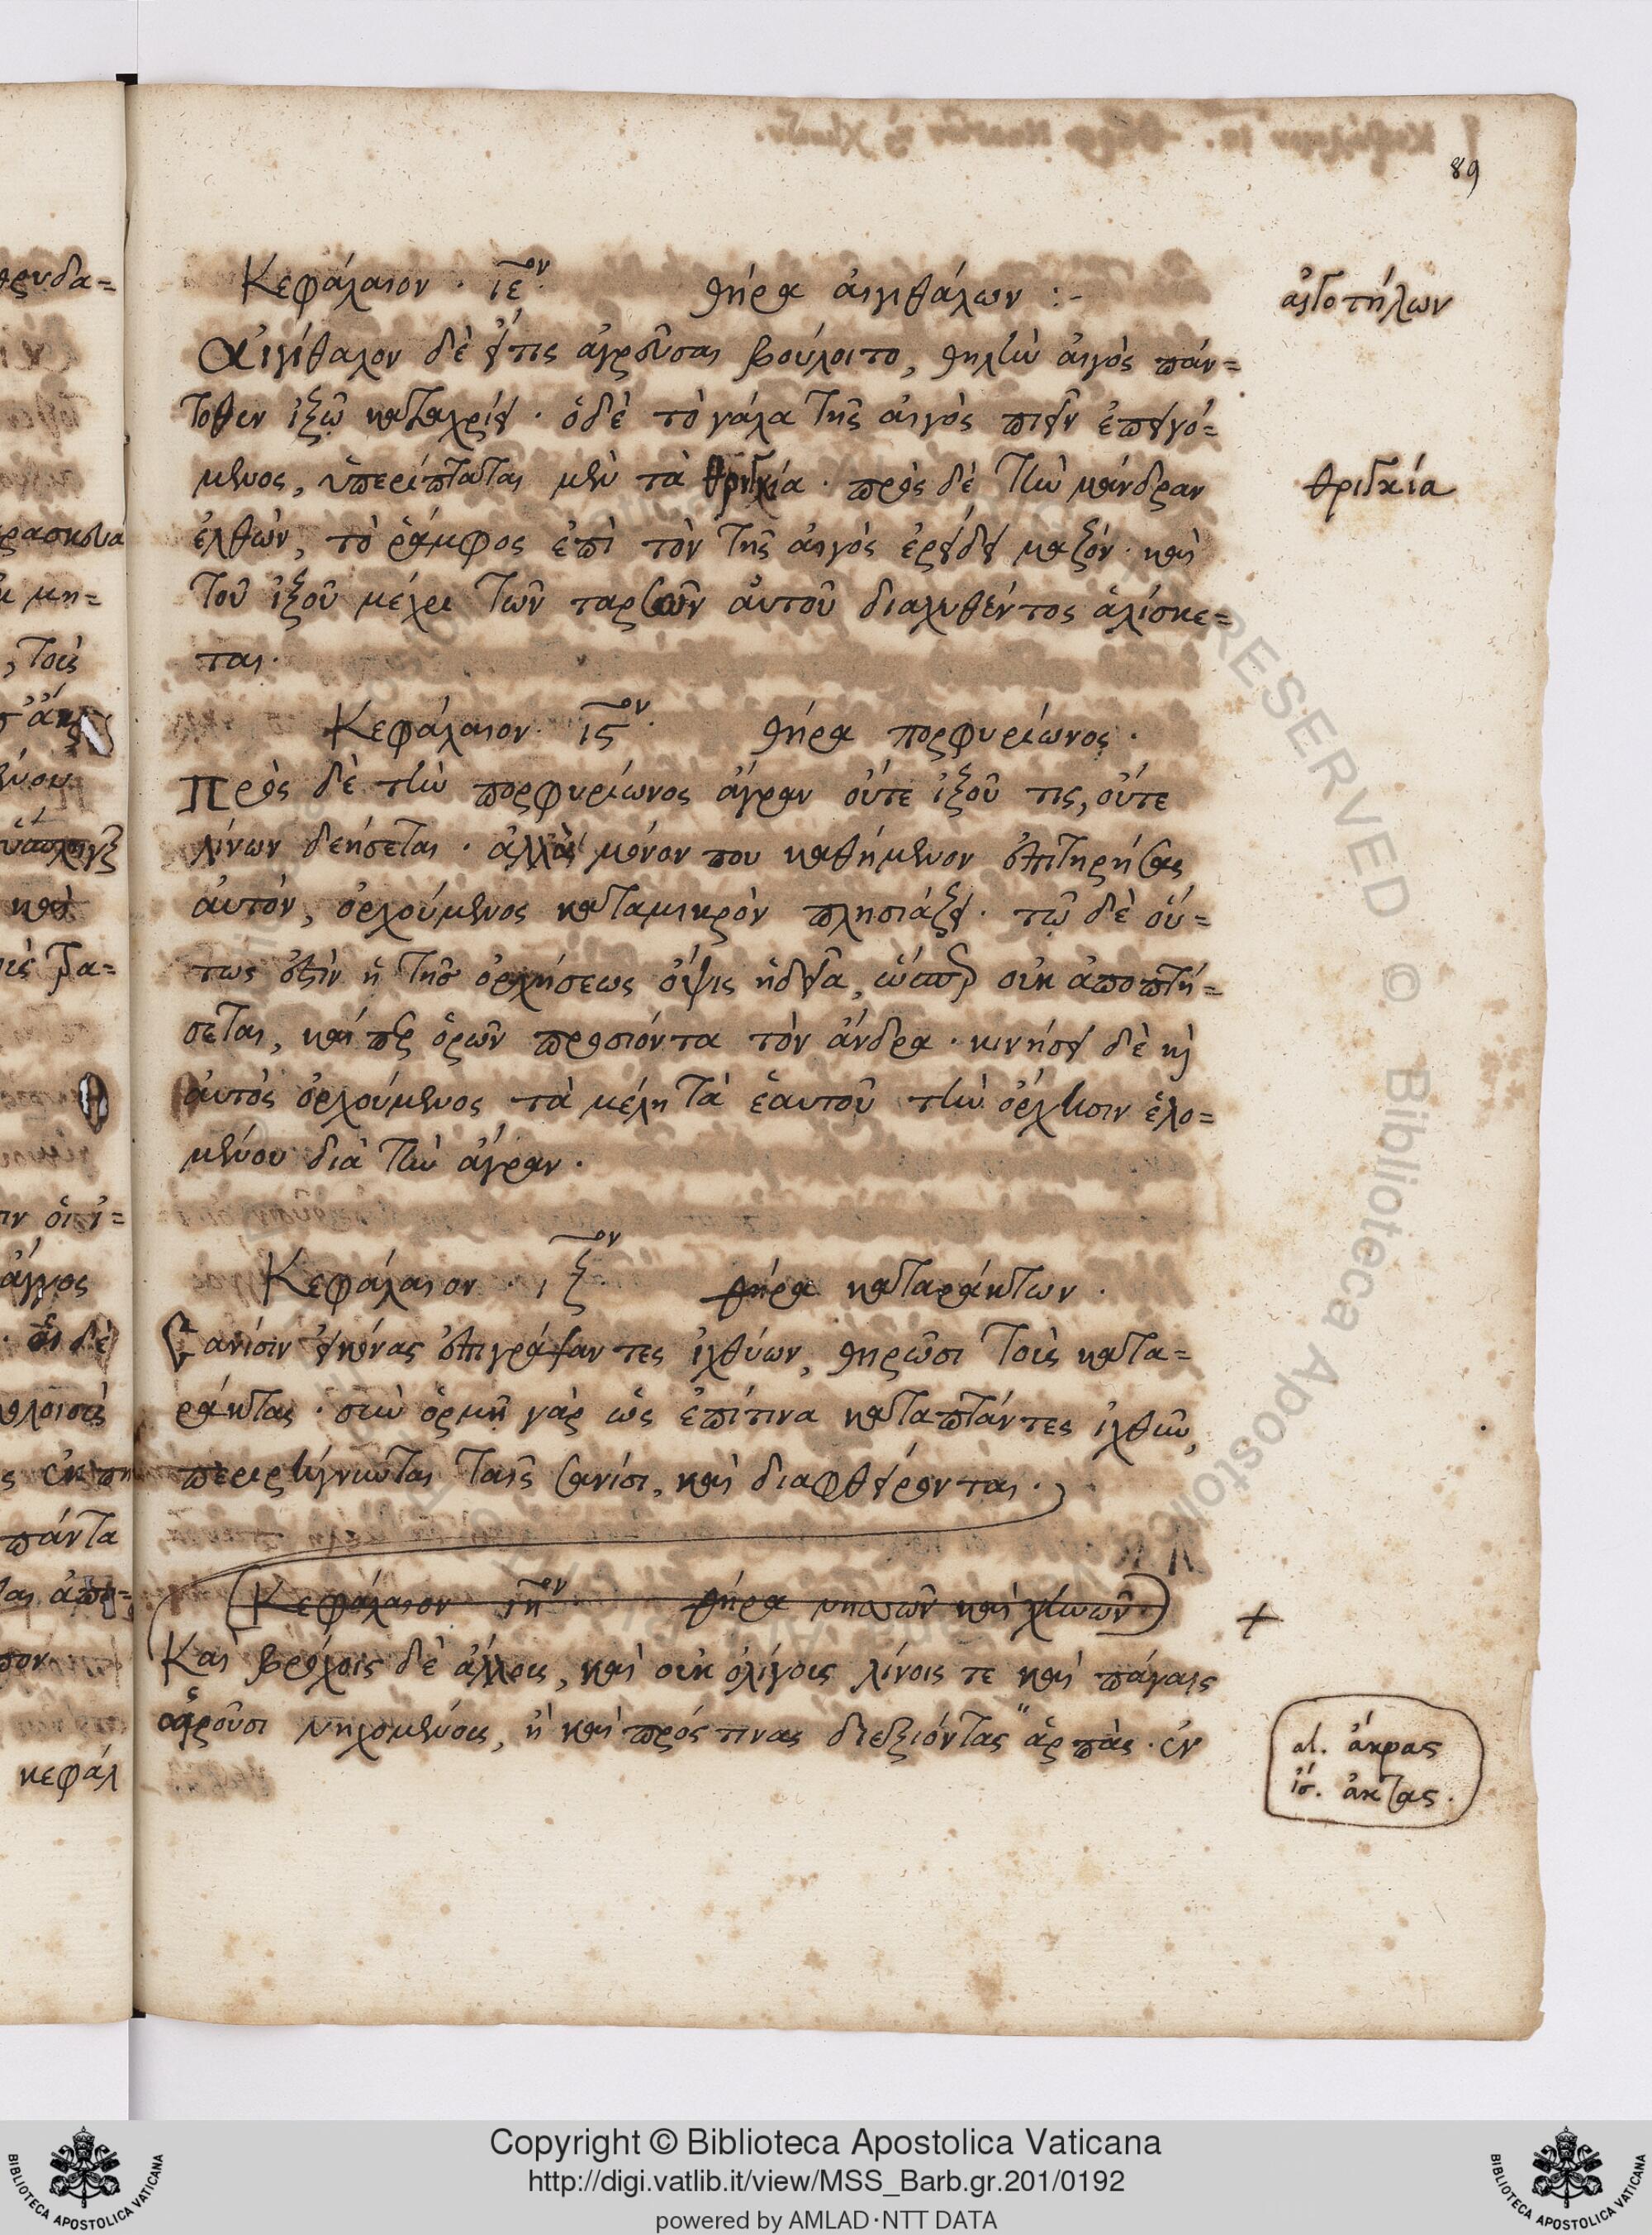 89
Κεφάλαιον · ιε^ον. θήρα αἰγιθάλων :-
αἰγοτήλων
Αἰγίθαλον δὲ εἴτις ἀγρεῦσαι βούλοιτο, θηλὴν αἰγὸς πάν=
τοθεν ἰξῷ καταχρίει · ὁδὲ τὸ γάλα τῆς αἰγὸς πιεῖν ἐπειγό=
μενος, ὑπερίπταται μὲν τὰ θριγκία · πρὸς δὲ τὴν μάνδραν
θριγκία
ἐλθὼν, τὸ ῥάμφος ἐπὶ τὸν τῆς αἰγὸς ἐρείδει μαζόν · καὶ
τοῦ ἰξοῦ μέχρι τῶν ταρσῶν αὐτοῦ διαλυθέντος ἁλίσκε=
ται·
Κεφάλαιον · ις^ον. θήρα πορφυρίωνος ·
Πρὸς δὲ τὴν πορφυρίωνος ἄγραν οὔτε ἰξοῦ τις, οὔτε
λίνων δεήσεται · ἀλλὰ μόνον που καθήμενον ἐπιτηρήσας
αὐτὸν, ὀρχούμενος καταμικρὸν πλησιάζει · τῷ δὲ οὕ=
τως ἐστὶν ἡ τῆς ὀρχήσεως ὄψις ἡδεῖα, ὥσπερ οὐκ ἀποπτή=
σεται, καίπερ ὁρῶν προσιόντα τὸν ἄνδρα · κινήσει δὲ κ
αὐτὸς ὀρχούμενος τὰ μέλη τὰ ἑαυτοῦ τὴν ὄρχησιν ἑλο=
μένου διὰ τὴν ἄγραν ·
Κεφάλαιον · ιζ^ον. θήρα καταράκτων ·
Σανίσιν εἰκόνας ἐπιγράψαντες ἰχθύων, θηρῶσι τοὺς κατα=
ράκτας · σὺν ὁρμῇ γὰρ ὡς ἐπίτινα καταπτάντες ἰχθὺν,
περιρήγνυνται ταῖς σανίσι, καὶ διαφθείρονται ·
Κεφάλαιον ιη^ον θήρα νησσῶν καὶ χηνῶν
+
Καὶ βρόχοις δὲ ἄλλοις, καὶ οὐκ ὀλίγοις λίνοις τε καὶ πάγαις
αἱροῦσι νηχομένους, ἢ καὶ πρός τινας διεξιόντας " ἁρπὰς · ἐν
al. ἄκρας
ἴσ. ἀκτὰς.
Copyright © Biblioteca Apostolica Vaticana
http://digi.vatlib.it/view/MSS_Barb.gr.201/0192
powered by AMLAD·NTT DATA